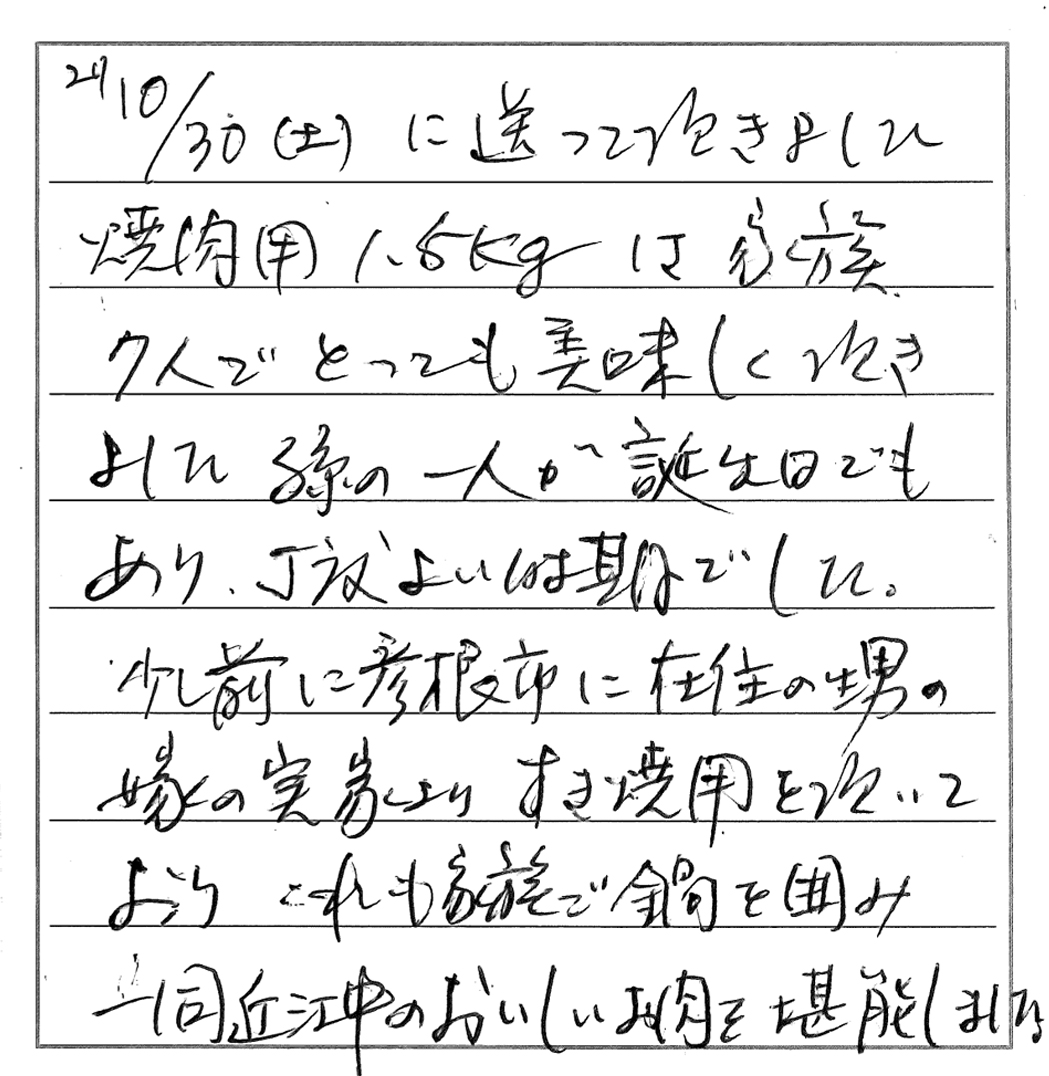 21 10/30(土)に送って頂きました
焼肉用1.5kgは家族
7人でとっても美味しく頂き
ました 孫の一人が誕生日でも
あり、丁度よい時期でした。
少し前に彦根市に在住の甥の
嫁の実家より すき焼用を頂いて
おり これも家族で鍋を囲み
一同近江牛のおいしいお肉を堪能しました